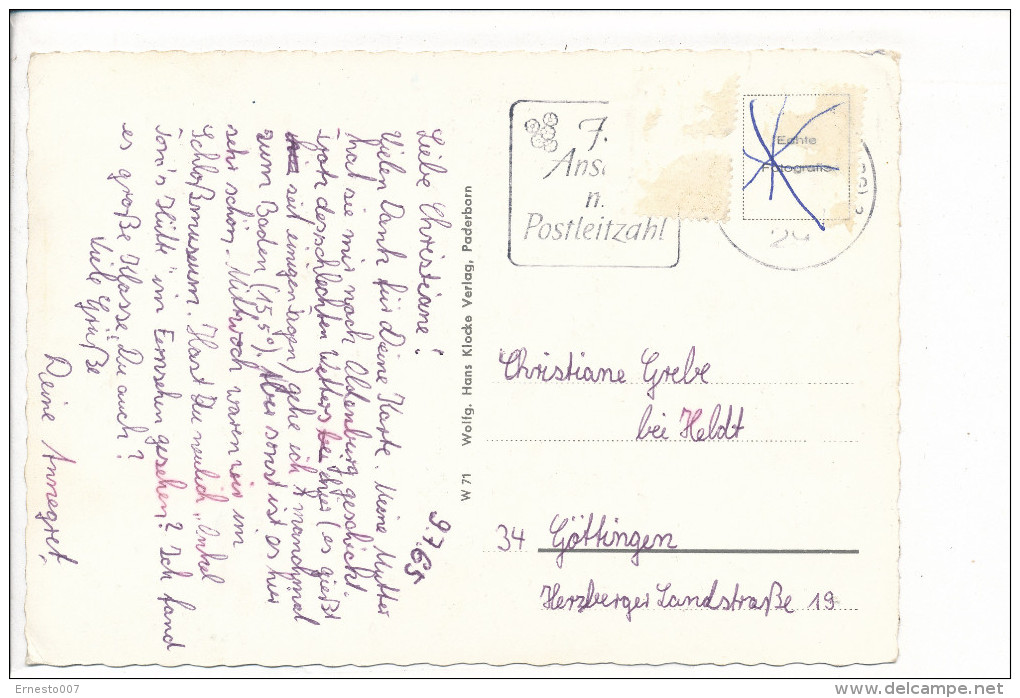 9.7.65
Liebe Christiane!
Vielen Dank für Deine Karte. Meine Mutter
hat sie mir nach Oldenburg geschickt.
Trotz des schlechten Wetters hier (es gießt
seit einigen Tagen) gehe ich manchmal
zum Baden (15,5°). Aber sonst ist es hier
sehr schön. Mittwoch waren wir im
Schloßmuseum. Hast Du neulich „Onkel
Tom's Hütte" im Fernsehen gesehen? Ich fand
es große Klasse, Du auch?
Viele Grüße
Deine Annegret
W 71 Wolfg. Hans Klocke Verlag, Paderborn
Postleitzahl
Echte
Fotografie
24
Christiane Grebe
bei Heldt
34 Göttingen
Herzberger Landstraße 19
Ernesto007
delcampe.net